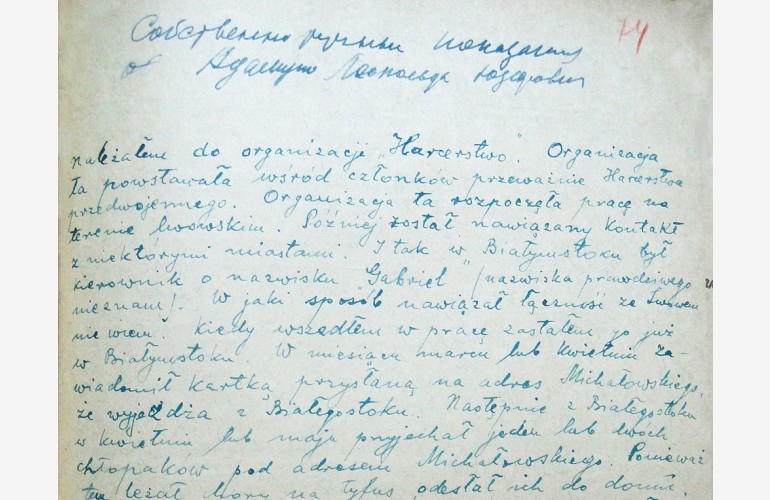 Собственно ручныи показания 74
от Адамцио Леопольда Юзефовича
należałem do organizacji „Harcerstwo". Organizacja
ta powstawała wśród członków przeważnie Harcerstwa
przedwojennego. Organizacja ta rozpoczęła pracę na
terenie lwowskim. Później został nawiązany kontakt
z niektórymi miastami. I tak w Białymstoku był
kierownik o nazwisku „Gabriel" (nazwiska prawdziwego
nieznam). W jaki sposób nawiązał łączność ze Lwowem
nie wiem. Kiedy wszedłem w pracę zastałem go już
w Białymstoku. W miesiącu marcu lub kwietniu za-
wiadomił kartką przysłaną na adres Michałowskiego,
że wyjeżdża z Białegostoku. Następnie z Białegostoku
w kwietniu lub maju przyjechał jeden lub dwóch
chłopaków pod adresem Michałowskiego. Ponieważ
ten leżał chory na tyfus odesłał ich do domu